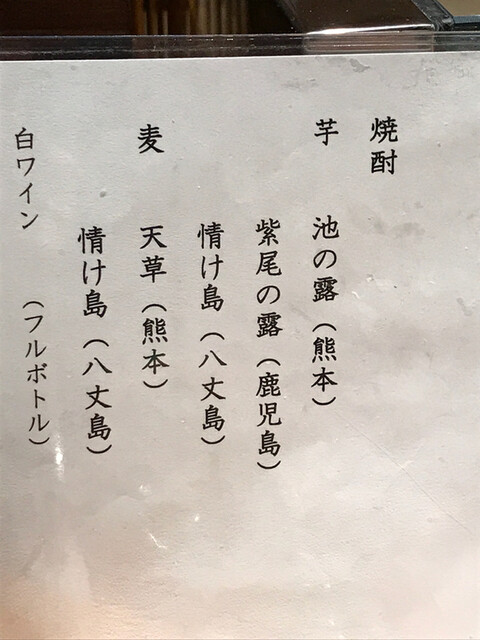 焼酎
芋　池の露（熊本）
紫尾の露（鹿児島）
情け島（八丈島）
麦　天草（熊本）
情け島（八丈島）
白ワイン　（フルボトル）